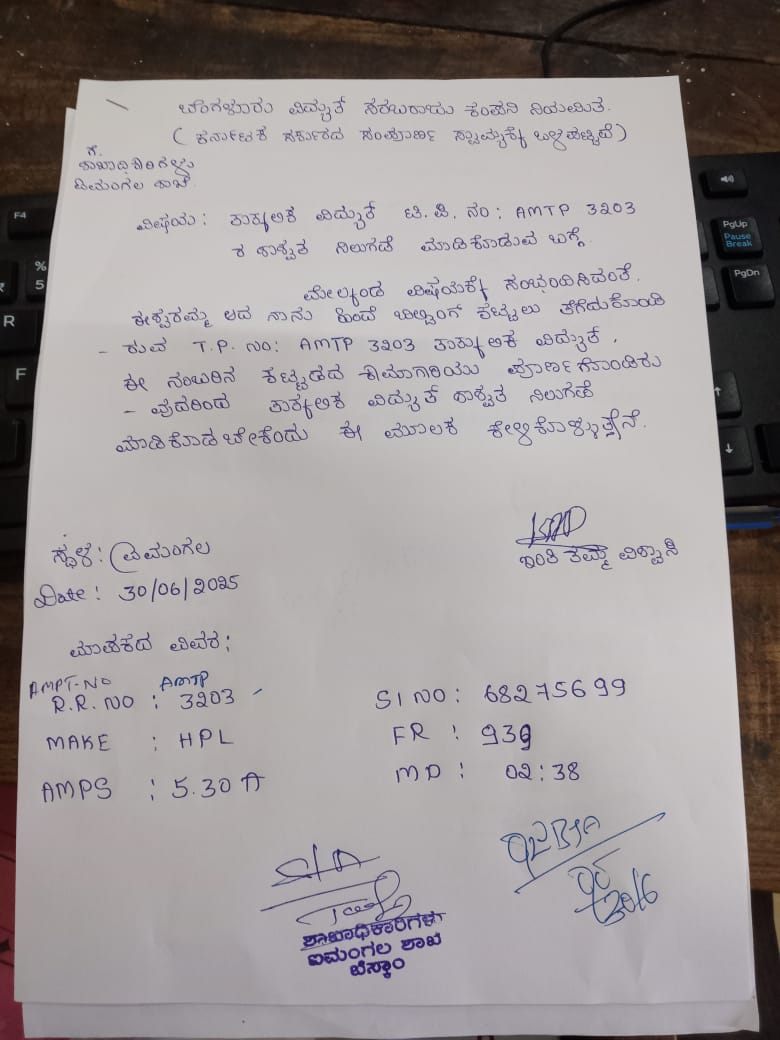 ಬೆಂಗಳೂರು ವಿದ್ಯುತ್ ಸರಬರಾಜು ಕಂಪನಿ ನಿಯಮಿತ.
( ಕರ್ನಾಟಕ ಸರ್ಕಾರದ ಸಂಪೂರ್ಣ ಸ್ವಾಮ್ಯಕ್ಕೆ ಒಳಪಟ್ಟಿದೆ )
ಗೆ.
ಶಾಖಾಧಿಕಾರಿಗಳು
ಐಮಂಗಲ ಶಾಖೆ.
ವಿಷಯ: ತಾತ್ಕಾಲಿಕ ವಿದ್ಯುತ್ ಟಿ.ಪಿ. ನಂ: AMTP 3203
ರ ಶಾಶ್ವತ ನಿಲುಗಡೆ ಮಾಡಿಕೊಡುವ ಬಗ್ಗೆ.
ಮೇಲ್ಕಂಡ ವಿಷಯಕ್ಕೆ ಸಂಭಂದಿಸಿದಂತೆ.
ಈಶ್ವರಮ್ಮ ಆದ ನಾನು ಹಿಂದೆ ಬಿಲ್ಡಿಂಗ್ ಕಟ್ಟಲು ತೆಗೆದುಕೊಂಡಿ
- ರುವ T.P. NO: AMTP 3203 ತಾತ್ಕಾಲಿಕ ವಿದ್ಯುತ್,
ಈ ನಂಬರಿನ ಕಟ್ಟಡದ ಕಾಮಗಾರಿಯು ಪೂರ್ಣಗೊಂಡಿರು
- ವುದರಿಂದ ತಾತ್ಕಾಲಿಕ ವಿದ್ಯುತ್ ಶಾಶ್ವತ ನಿಲುಗಡೆ
ಮಾಡಿಕೊಡಬೇಕೆಂದು ಈ ಮೂಲಕ ಕೇಳಿಕೊಳ್ಳುತ್ತೇನೆ.
ಸ್ಥಳ: ಐಮಂಗಲ
ಇಂತಿ ತಮ್ಮ ವಿಶ್ವಾಸಿ
Date: 30/06/2025
ಮಾಪಕದ ವಿವರ:
AMPT-NO AMTP
R.R. NO : 3203
SI NO: 68275699
MAKE : HPL
FR : 939
AMPS : 5.30 A
MD : 02:38
ಶಾಖಾಧಿಕಾರಿಗಳು
ಐಮಂಗಲ ಶಾಖೆ
ಬೆಸ್ಕಾಂ